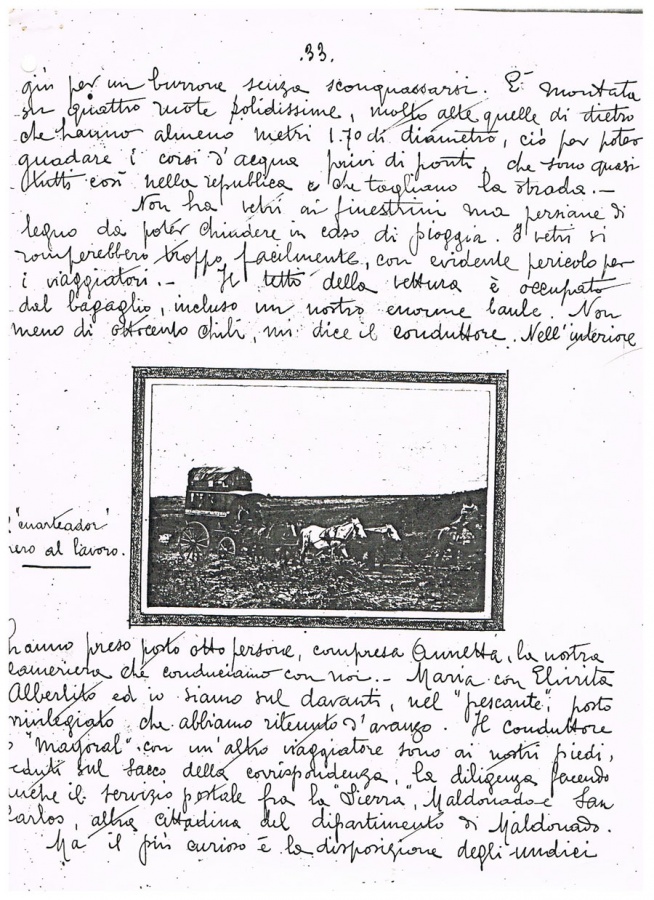 .33.
giù per un burrone senza sconquassarsi. È montata
su quattro ruote solidissime, molto alte quelle di dietro
che hanno almeno metri 1.70 di diametro, ciò per poter
guadare i corsi d'acqua privi di ponti, che sono quasi
tutti così nella republica e che tagliano la strada.-
Non ha vetri ai finestrini ma persiane di
legno da poter chiudere in caso di pioggia. I vetri si
romperebbero troppo facilmente, con evidente pericolo per
i viaggiatori.- Il tetto della vettura è occupato
dal bagaglio, incluso un nostro enorme baule. Non
meno di ottocento chili, mi dice il conduttore. Nell'interiore
"cuarteador"
nero al lavoro.
hanno preso posto otto persone, compresa Annetta, la nostra
cameriera che conduciamo con noi.- Maria con Elvirita
Albertito ed io siamo sul davanti, nel "pescante", posto
privilegiato che abbiamo ritenuto d'avanzo. Il conduttore
o "mayoral" con un'altro viaggiatore sono ai nostri piedi,
seduti sul sacco della corrispondenza, la diligenza facendo
anche il servizio postale fra la "Sierra", Maldonado e San
Carlos, altra cittadina del dipartimento di Maldonado.
Ma il più curioso è la disposizione degli undici